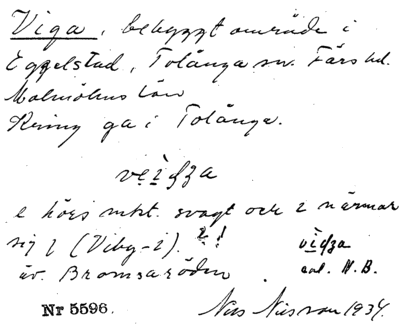 Viga, bebyggt område i
Eggelstad, Tolånga sn. Färs hd.
Malmöhus län
Kring ga i Tolånga.
vei̯ʒa
e hörs mkt. svagt och i närmar
sig (Viby-i). ?!
viʒa
äv. Bromsaröden
enl. H. B.
Nr 5596.
Nils Nilsson 1934.